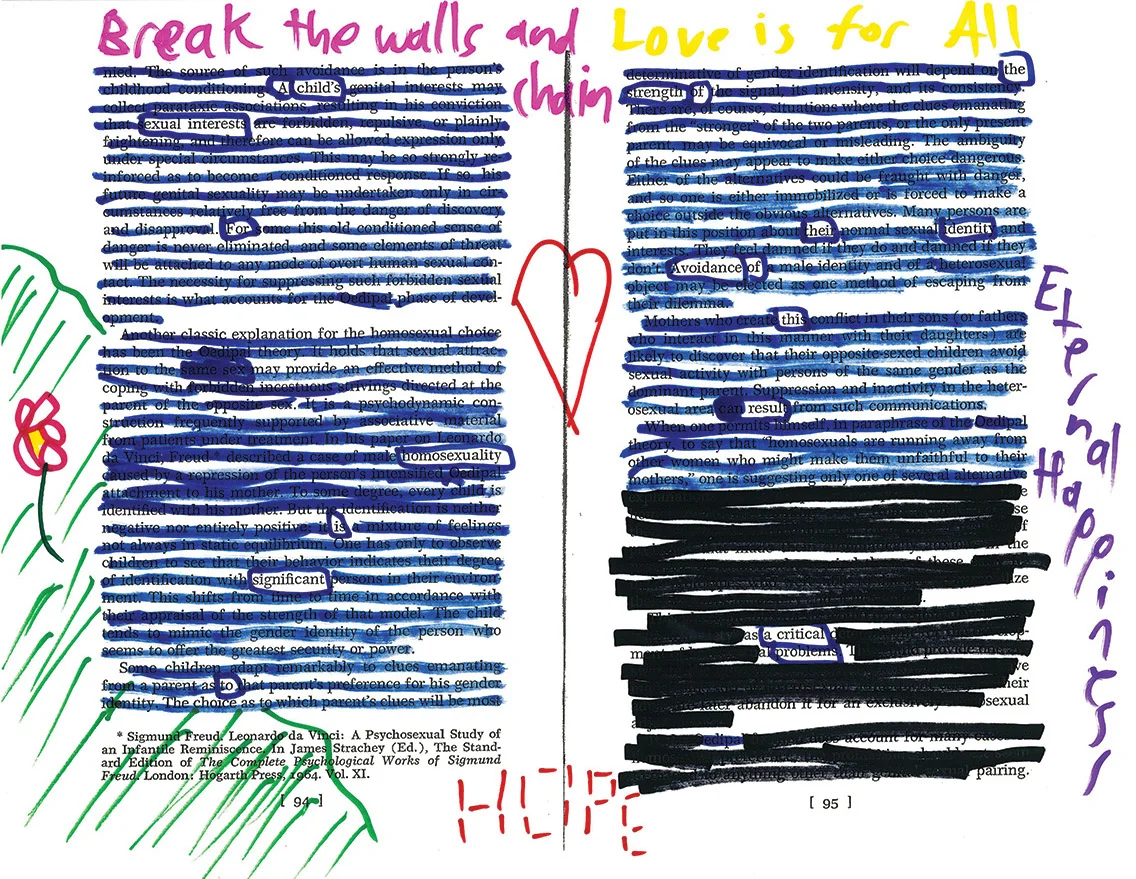 Break the walls and
chain
Love is for All
nied. The source of such avoidance is in the person's
childhood conditioning. A child's genital interests may
collect parataxic associations, resulting in his conviction
that sexual interests are forbidden, repulsive, or plainly
frightening, and therefore can be allowed expression only
under special circumstances. This may be so strongly re-
inforced as to become a conditioned response. If so, his
future genital sexuality may be undertaken only in cir-
cumstances relatively free from the danger of discovery
and disapproval. For some this old conditioned sense of
danger is never eliminated, and some elements of threat
will be attached to any mode of overt human sexual con-
tact. The necessity for suppressing such forbidden sexual
interests is what accounts for the Oedipal phase of devel-
opment.
Another classic explanation for the homosexual choice
has been the Oedipal theory. It holds that sexual attrac-
tion to the same sex may provide an effective method of
coping with forbidden incestuous strivings directed at the
parent of the opposite sex. It is a psychodynamic con-
struction frequently supported by associative material
from patients under treatment. In his paper on Leonardo
da Vinci, Freud * described a case of male homosexuality
caused by a repression of the person's intensified Oedipal
attachment to his mother. To some degree, every child is
identified with his mother. But the identification is neither
negative nor entirely positive; it is a mixture of feelings
not always in static equilibrium. One has only to observe
children to see that their behavior indicates their degree
of identification with significant persons in their environ-
ment. This shifts from time to time in accordance with
their appraisal of the strength of that model. The child
tends to mimic the gender identity of the person who
seems to offer the greatest security or power.
Some children adapt remarkably to clues emanating
from a parent as to that parent's preference for his gender
identity. The choice as to which parent's clues will be most
* Sigmund Freud, Leonardo da Vinci: A Psychosexual Study of
an Infantile Reminiscence, in James Strachey (Ed.), The Stand-
ard Edition of The Complete Psychological Works of Sigmund
Freud. London: Hogarth Press, 1964. Vol. XI.
[ 94 ]
determinative of gender identification will depend on the
strength of the signal, its intensity, and its consistency.
There are, of course, situations where the clues emanating
from the "stronger" of the two parents, or the only present
parent, may be equivocal or misleading. The ambiguity
of the clues may appear to make either choice dangerous.
Either of the alternatives could be fraught with danger,
and so one is either immobilized or is forced to make a
choice outside the obvious alternatives. Many persons are
put in this position about their normal sexual identity and
interests. They feel damned if they do and damned if they
don't. Avoidance of a male identity and of a heterosexual
object may be elected as one method of escaping from
their dilemma.
Mothers who create this conflict in their sons (or fathers
who interact in this manner with their daughters) are
likely to discover that their opposite-sexed children avoid
sexual activity with persons of the same gender as the
dominant parent. Suppression and inactivity in the heter-
osexual area can result from such communications.
When one permits himself, in paraphrase of the Oedipal
theory, to say that "homosexuals are running away from
other women who might make them unfaithful to their
mothers," one is suggesting only one of several alternative
a critical
problems
later abandon it for an exclusively
Oedipal account for many cases
to anything other than pairing.
[ 95 ]
Eternal
Happiness
HOPE